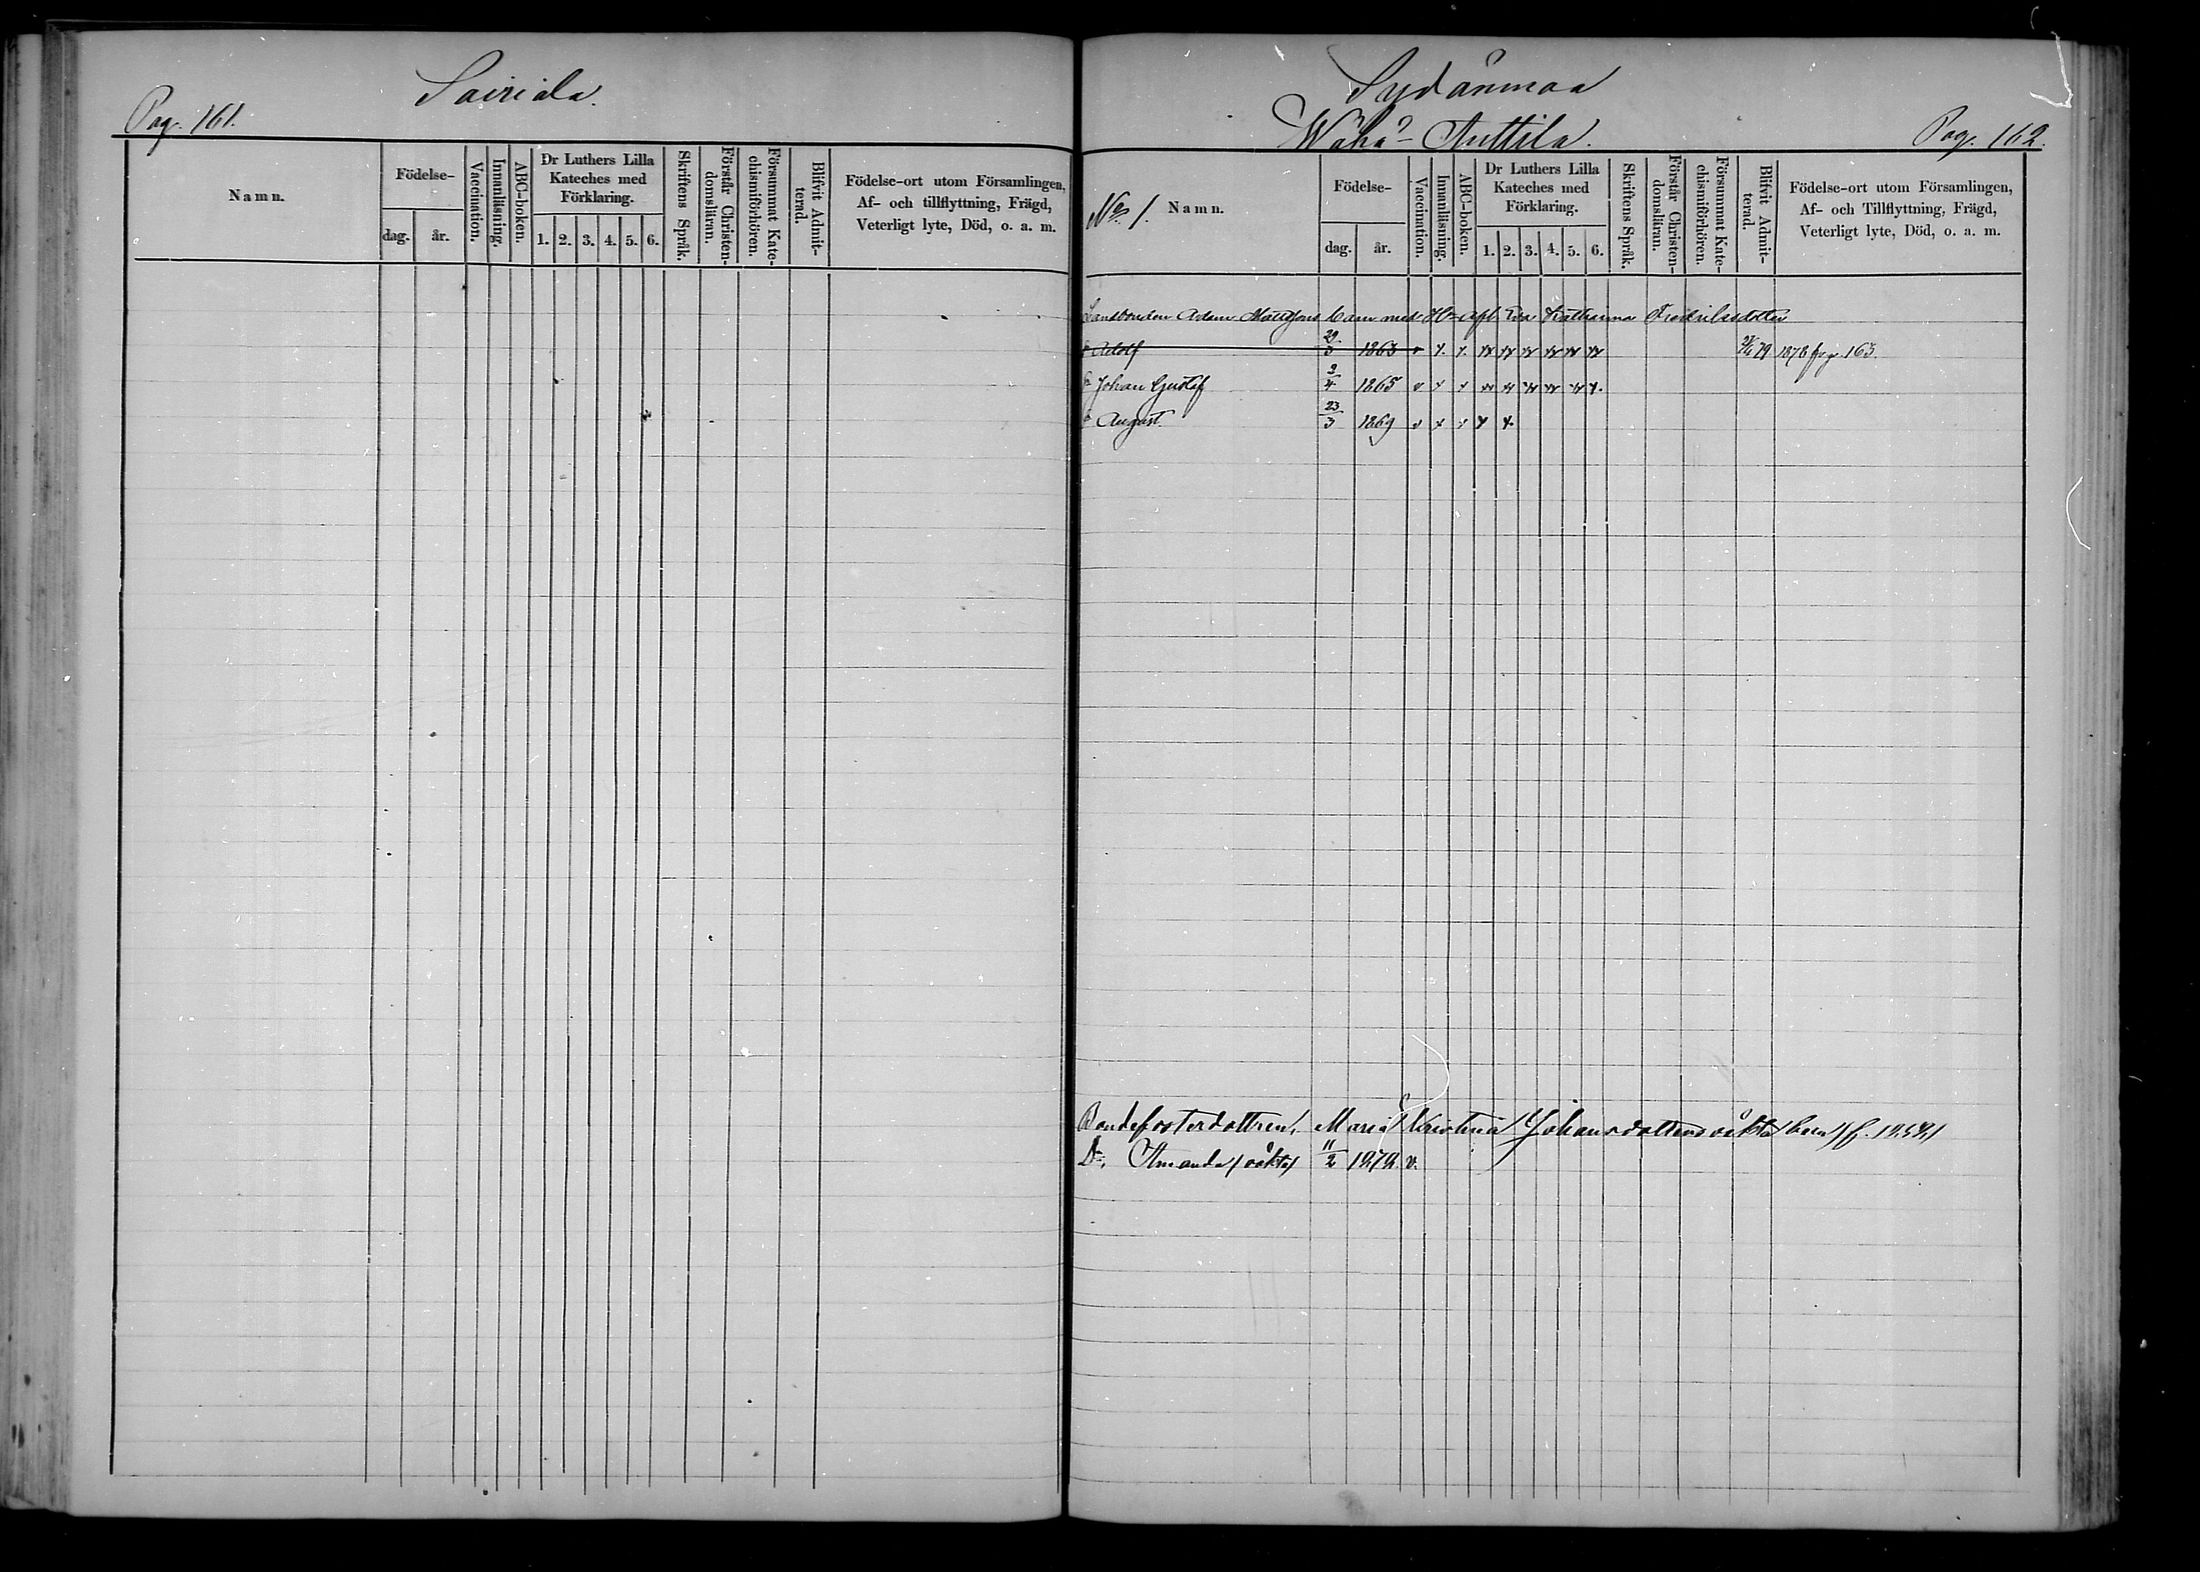 Pag. 161.
Sairiala.
Namn.
Födelse-
dag.
år.
Vaccination.
Innanläsning.
ABC-boken.
Dr Luthers Lilla
Kateches med
Förklaring.
1. 2. 3. 4. 5. 6.
Skriftens Språk.
Förstår Christen-
domsläran.
Försummat Kate-
chismiförhören.
Blifvit Admit-
terad.
Födelse-ort utom Församlingen,
Af- och tillflyttning, Frägd,
Veterligt lyte, Död, o. a. m.
Sydänmaa
Wähä-Anttila.
Pag. 162.
No 1. Namn.
Födelse-
dag.
år.
Vaccination.
Innanläsning.
ABC-boken.
Dr Luthers Lilla
Kateches med
Förklaring.
1. 2. 3. 4. 5. 6.
Skriftens Språk.
Förstår Christen-
domsläran.
Försummat Kate-
chismiförhören.
Blifvit Admit-
terad.
Födelse-ort utom Församlingen,
Af- och Tillflyttning, Frägd,
Veterligt lyte, Död, o. a. m.
Landbonden Adam Mattssons barn med H- afl. Eva Katharina Fredriksdotter
Adolf 29/3 1863 v 79 1878 fr p. 163.
Johan Gustaf 3/4 1865 v
August 23/3 1869 v
Bondefosterdottren, Maria Kristina Johansdotters oäkta barn
Do, Amanda (oäkta) 11/2 1879. v.